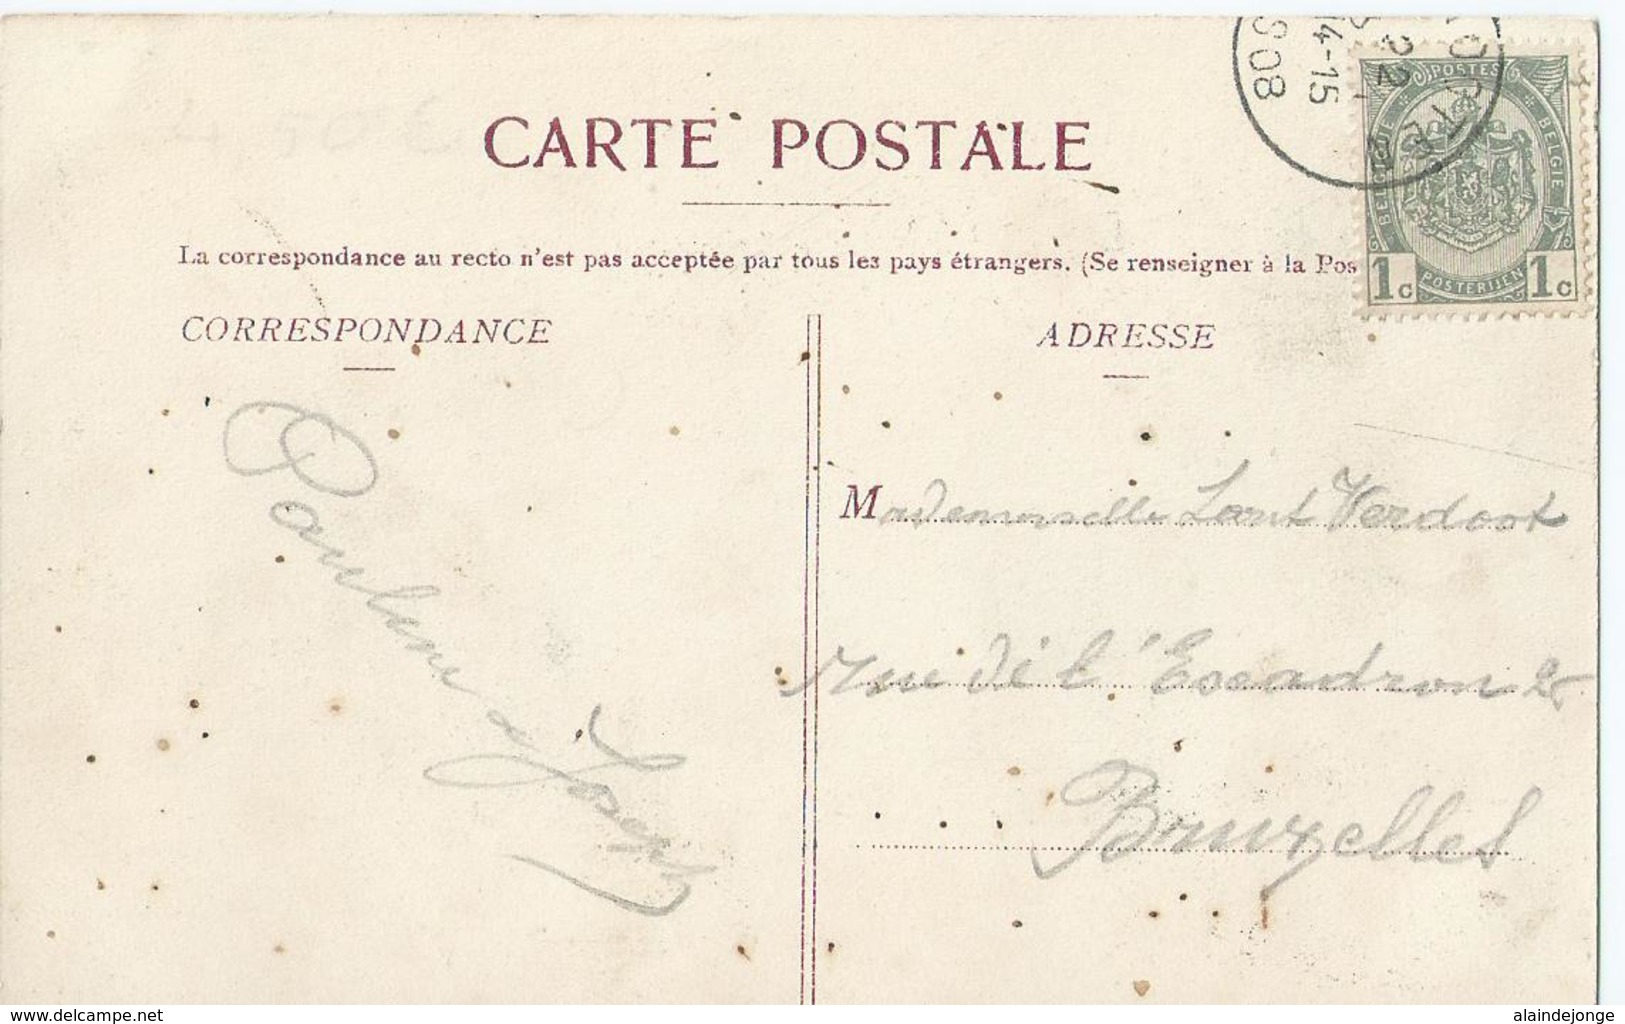 CARTE POSTALE
La correspondance au recto n'est pas acceptée par tous les pays étrangers. (Se renseigner à la Pos
CORRESPONDANCE
ADRESSE
POSTES
BELGIQUE
BELGIË
POSTERIJEN
1c 1c
22
14-15
1908
Mademoiselle Verdoot
Rue de l'Escadron 2
Bruxelles
Pauline & Joseph
www.delcampe.net
alaindejonge